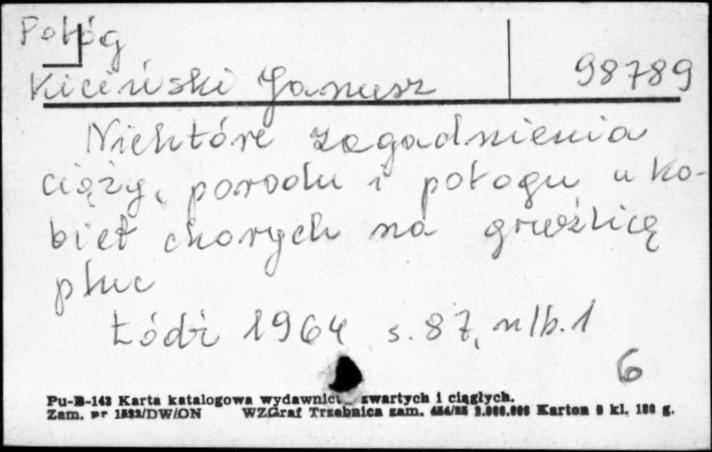 Połóg
Kiciński Janusz 98789
Niektóre zagadnienia
ciąży, porodu i połogu u ko-
biet chorych na gruźlicę
płuc
Łódź 1964 s. 87, nlb. 1
6
Pu-B-143 Karta katalogowa wydawnict zwartych i ciągłych.
Zam. nr DW/ON WZGraf Trzebnica zam. Karton kl. g.